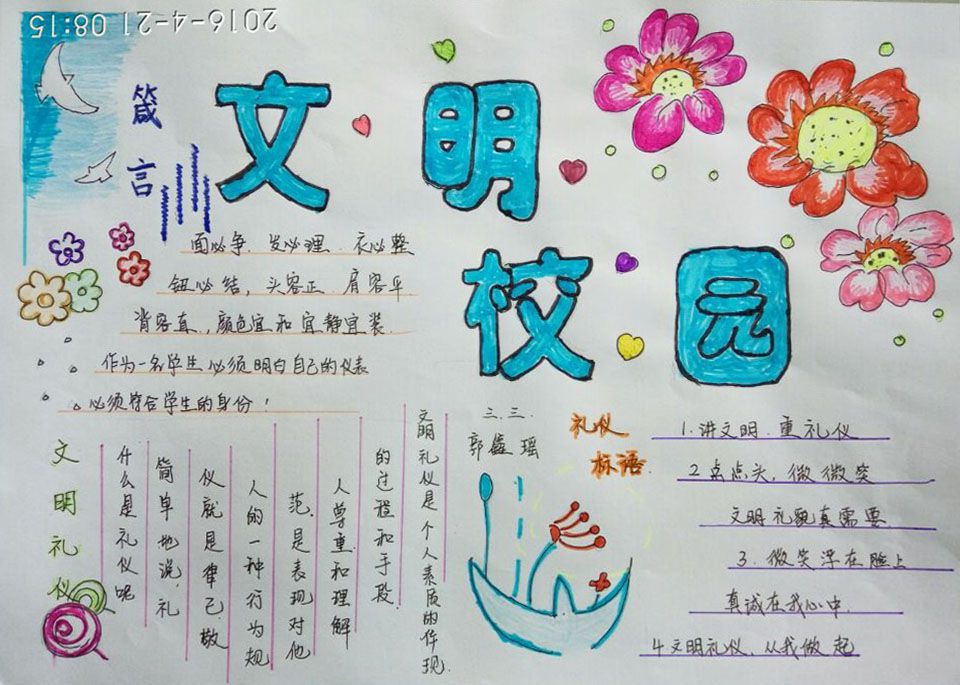 2016-4-21 08:15
文明
校园
箴言
面必争、发必理、衣必整
钮必结，头容正、肩容平
背容直，颜色宜和宜静宜装.
作为一名学生必须明白自己的仪表
必须符合学生的身份！
文明礼仪
什么是礼仪呢
简单地说，礼
仪就是律己、敬
人的一种行为规
范.是表现对他
人尊重和理解
的过程和手段.
文明礼仪是个人素质的体现.
三.三.
郭鑫瑶
礼仪
标语.
1.讲文明.重礼仪
2.点点头，微微笑
文明礼貌真需要
3.微笑浮在脸上
真诚在我心中.
4文明礼仪.从我做起